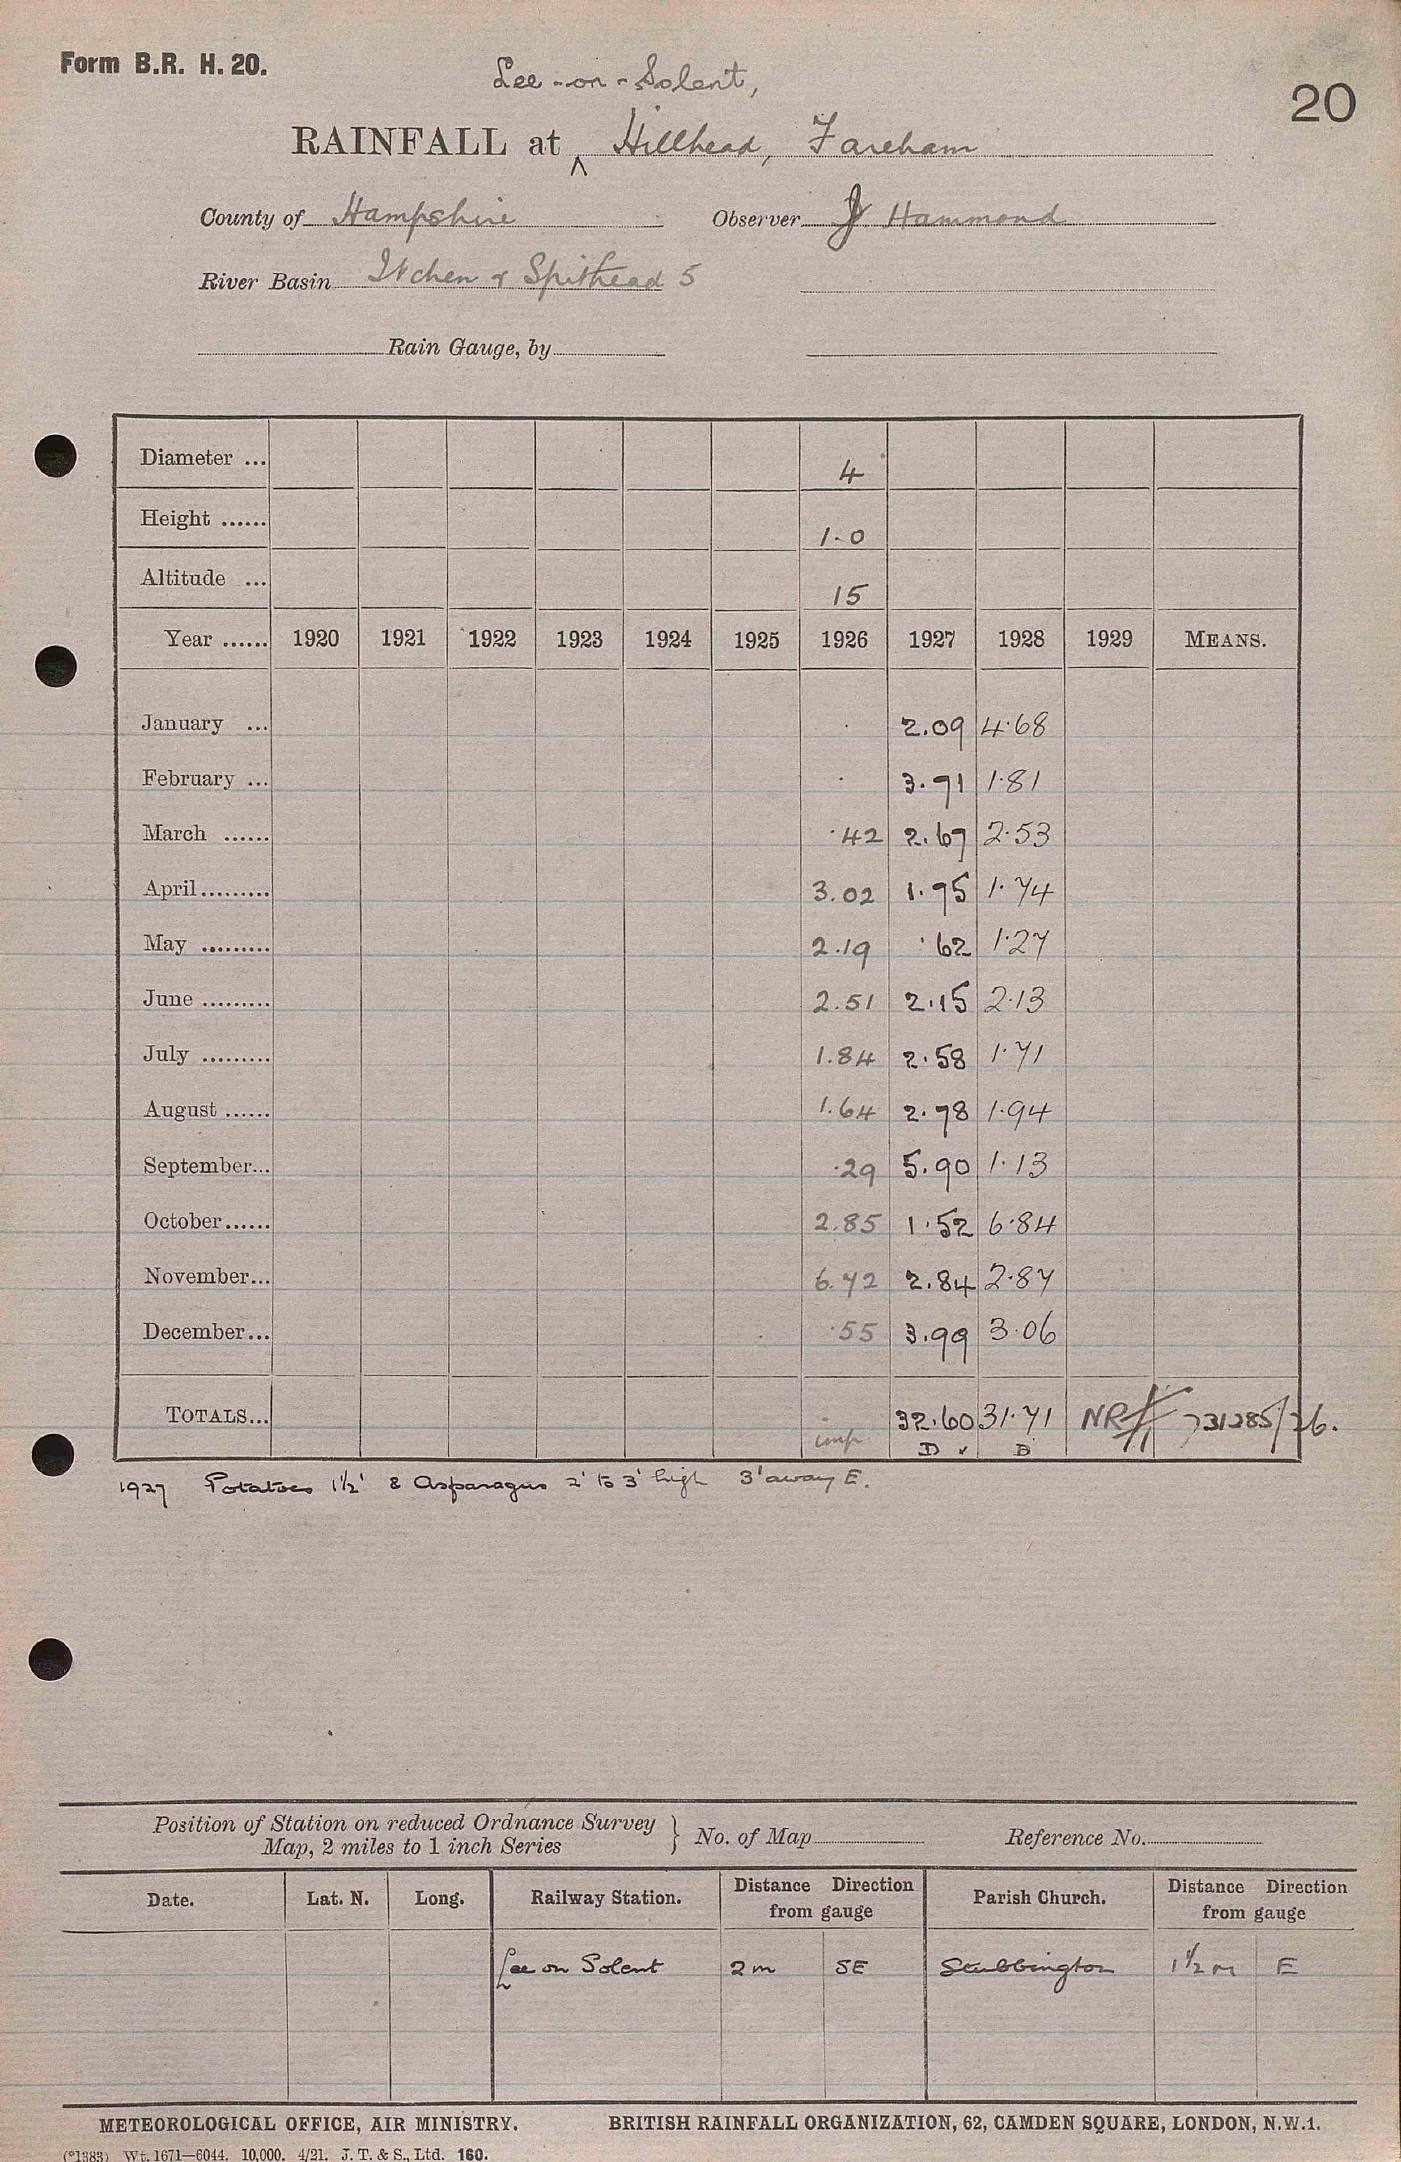 Form B.R. H. 20.
20
Lee-on-Solent,
RAINFALL at ^ Hillhead, Fareham
County of Hampshire Observer J Hammond
River Basin Itchen & Spithead 5
Rain Gauge, by
Diameter ... 4
Height ...... 1.0
Altitude ... 15
Year ...... 1920 1921 1922 1923 1924 1925 1926 1927 1928 1929 MEANS.
January ... . 2.09 4.68
February ... . 3.71 1.81
March ...... .42 2.67 2.53
April......... 3.02 1.75 1.74
May ......... 2.19 .62 1.27
June ......... 2.51 2.15 2.13
July ......... 1.84 2.58 1.71
August ...... 1.64 2.78 1.94
September... .29 5.90 1.13
October...... 2.85 1.52 6.84
November... 6.72 2.84 2.87
December... .55 3.99 3.06
TOTALS... imp. 32.60 31.71 NR 731285/26.
D ✓ B
1927 Potatoes 1½' & Asparagus 2' to 3' high 3' away E.
Position of Station on reduced Ordnance Survey
Map, 2 miles to 1 inch Series } No. of Map Reference No.
Date. Lat. N. Long. Railway Station. Distance Direction from gauge Parish Church. Distance Direction from gauge
Lee on Solent 2 m SE Stubbington 1½ m E
METEOROLOGICAL OFFICE, AIR MINISTRY. BRITISH RAINFALL ORGANIZATION, 62, CAMDEN SQUARE, LONDON, N.W.1.
(*1383) Wt. 1671—6044. 10,000. 4/21. J. T. & S., Ltd. 160.